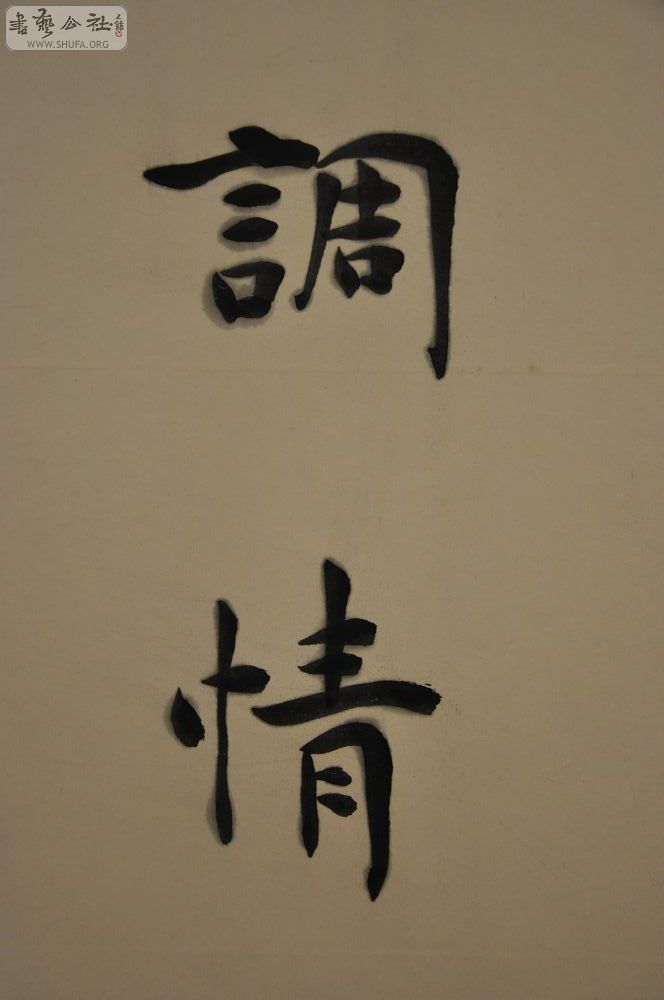 書藝公社
WWW.SHUFA.ORG
調
情